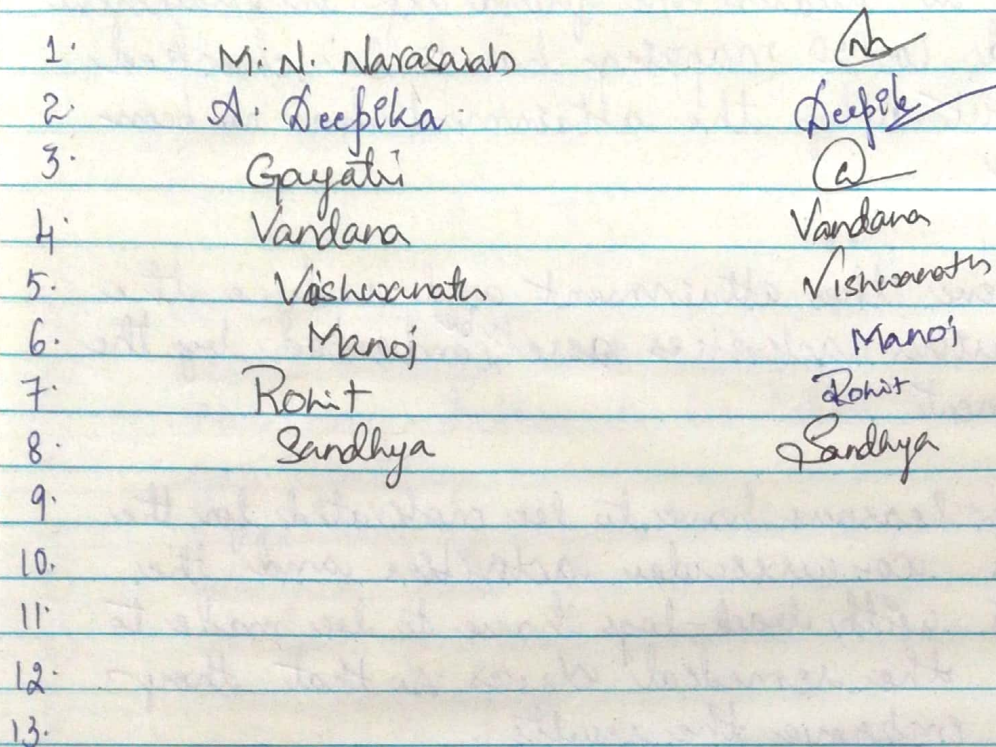 1. M. N. Narasaiah
2. A. Deepika Deepik
3. Gayatri
4. Vandana Vandana
5. Vishwanath Vishwanath
6. Manoj Manoj
7. Rohit Rohit
8. Sandhya Sandhya
9.
10.
11.
12.
13.